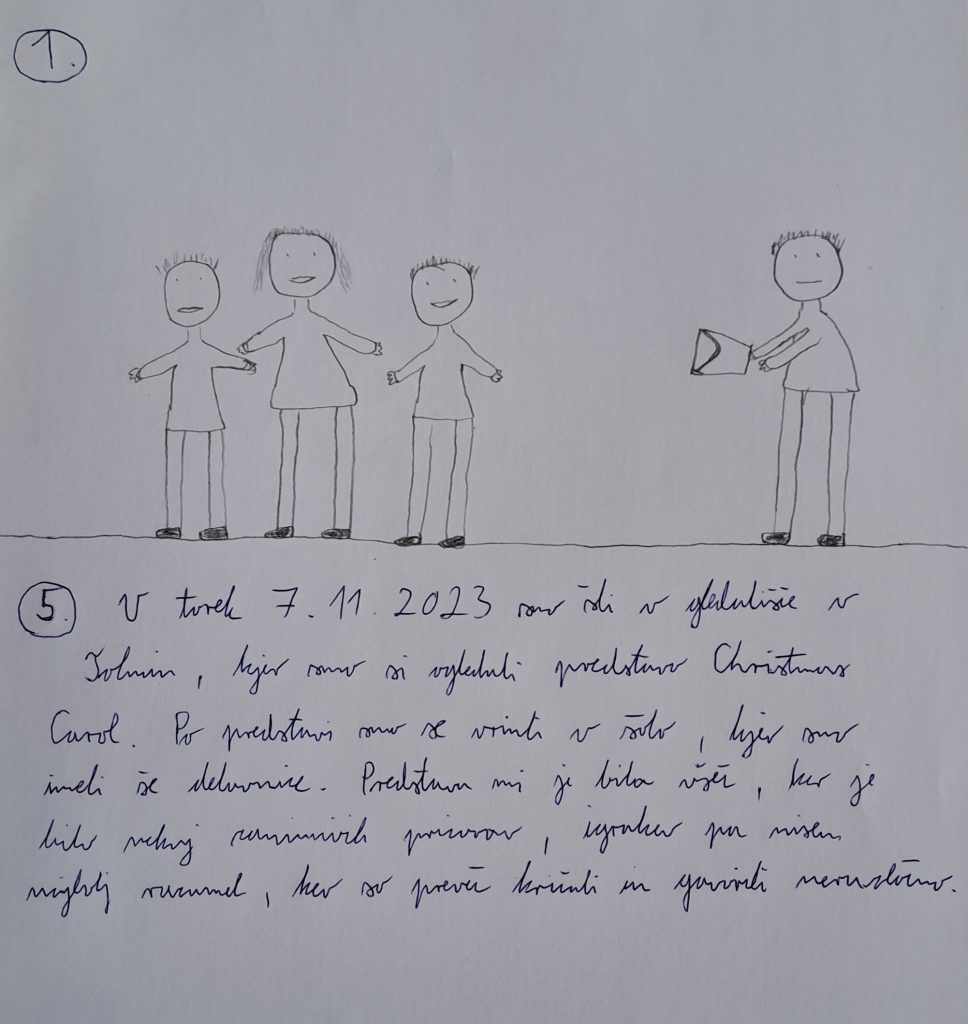 1.
5. V torek 7. 11. 2023 smo šli v gledališče v
Tolmin, kjer smo si ogledali predstavo Christmas
Carol. Po predstavi smo se vrnili v šolo, kjer smo
imeli še delavnice. Predstava mi je bila všeč, ker je
bilo nekaj zanimivih prizorov, igralcev pa nisem
najbolj razumel, ker so preveč kričali in govorili nerazločno.